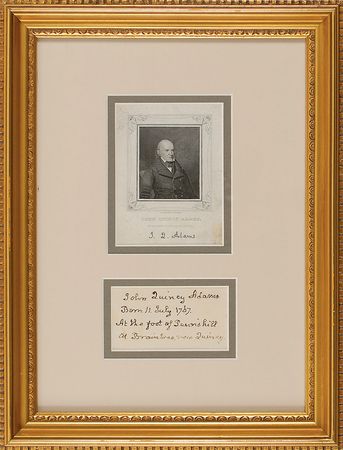 JOHN QUINCY ADAMS.
J. Q. Adams
John Quincy Adams
Born 11 July 1767.
At the foot of Penn's hill
at Braintree, now Quincy.